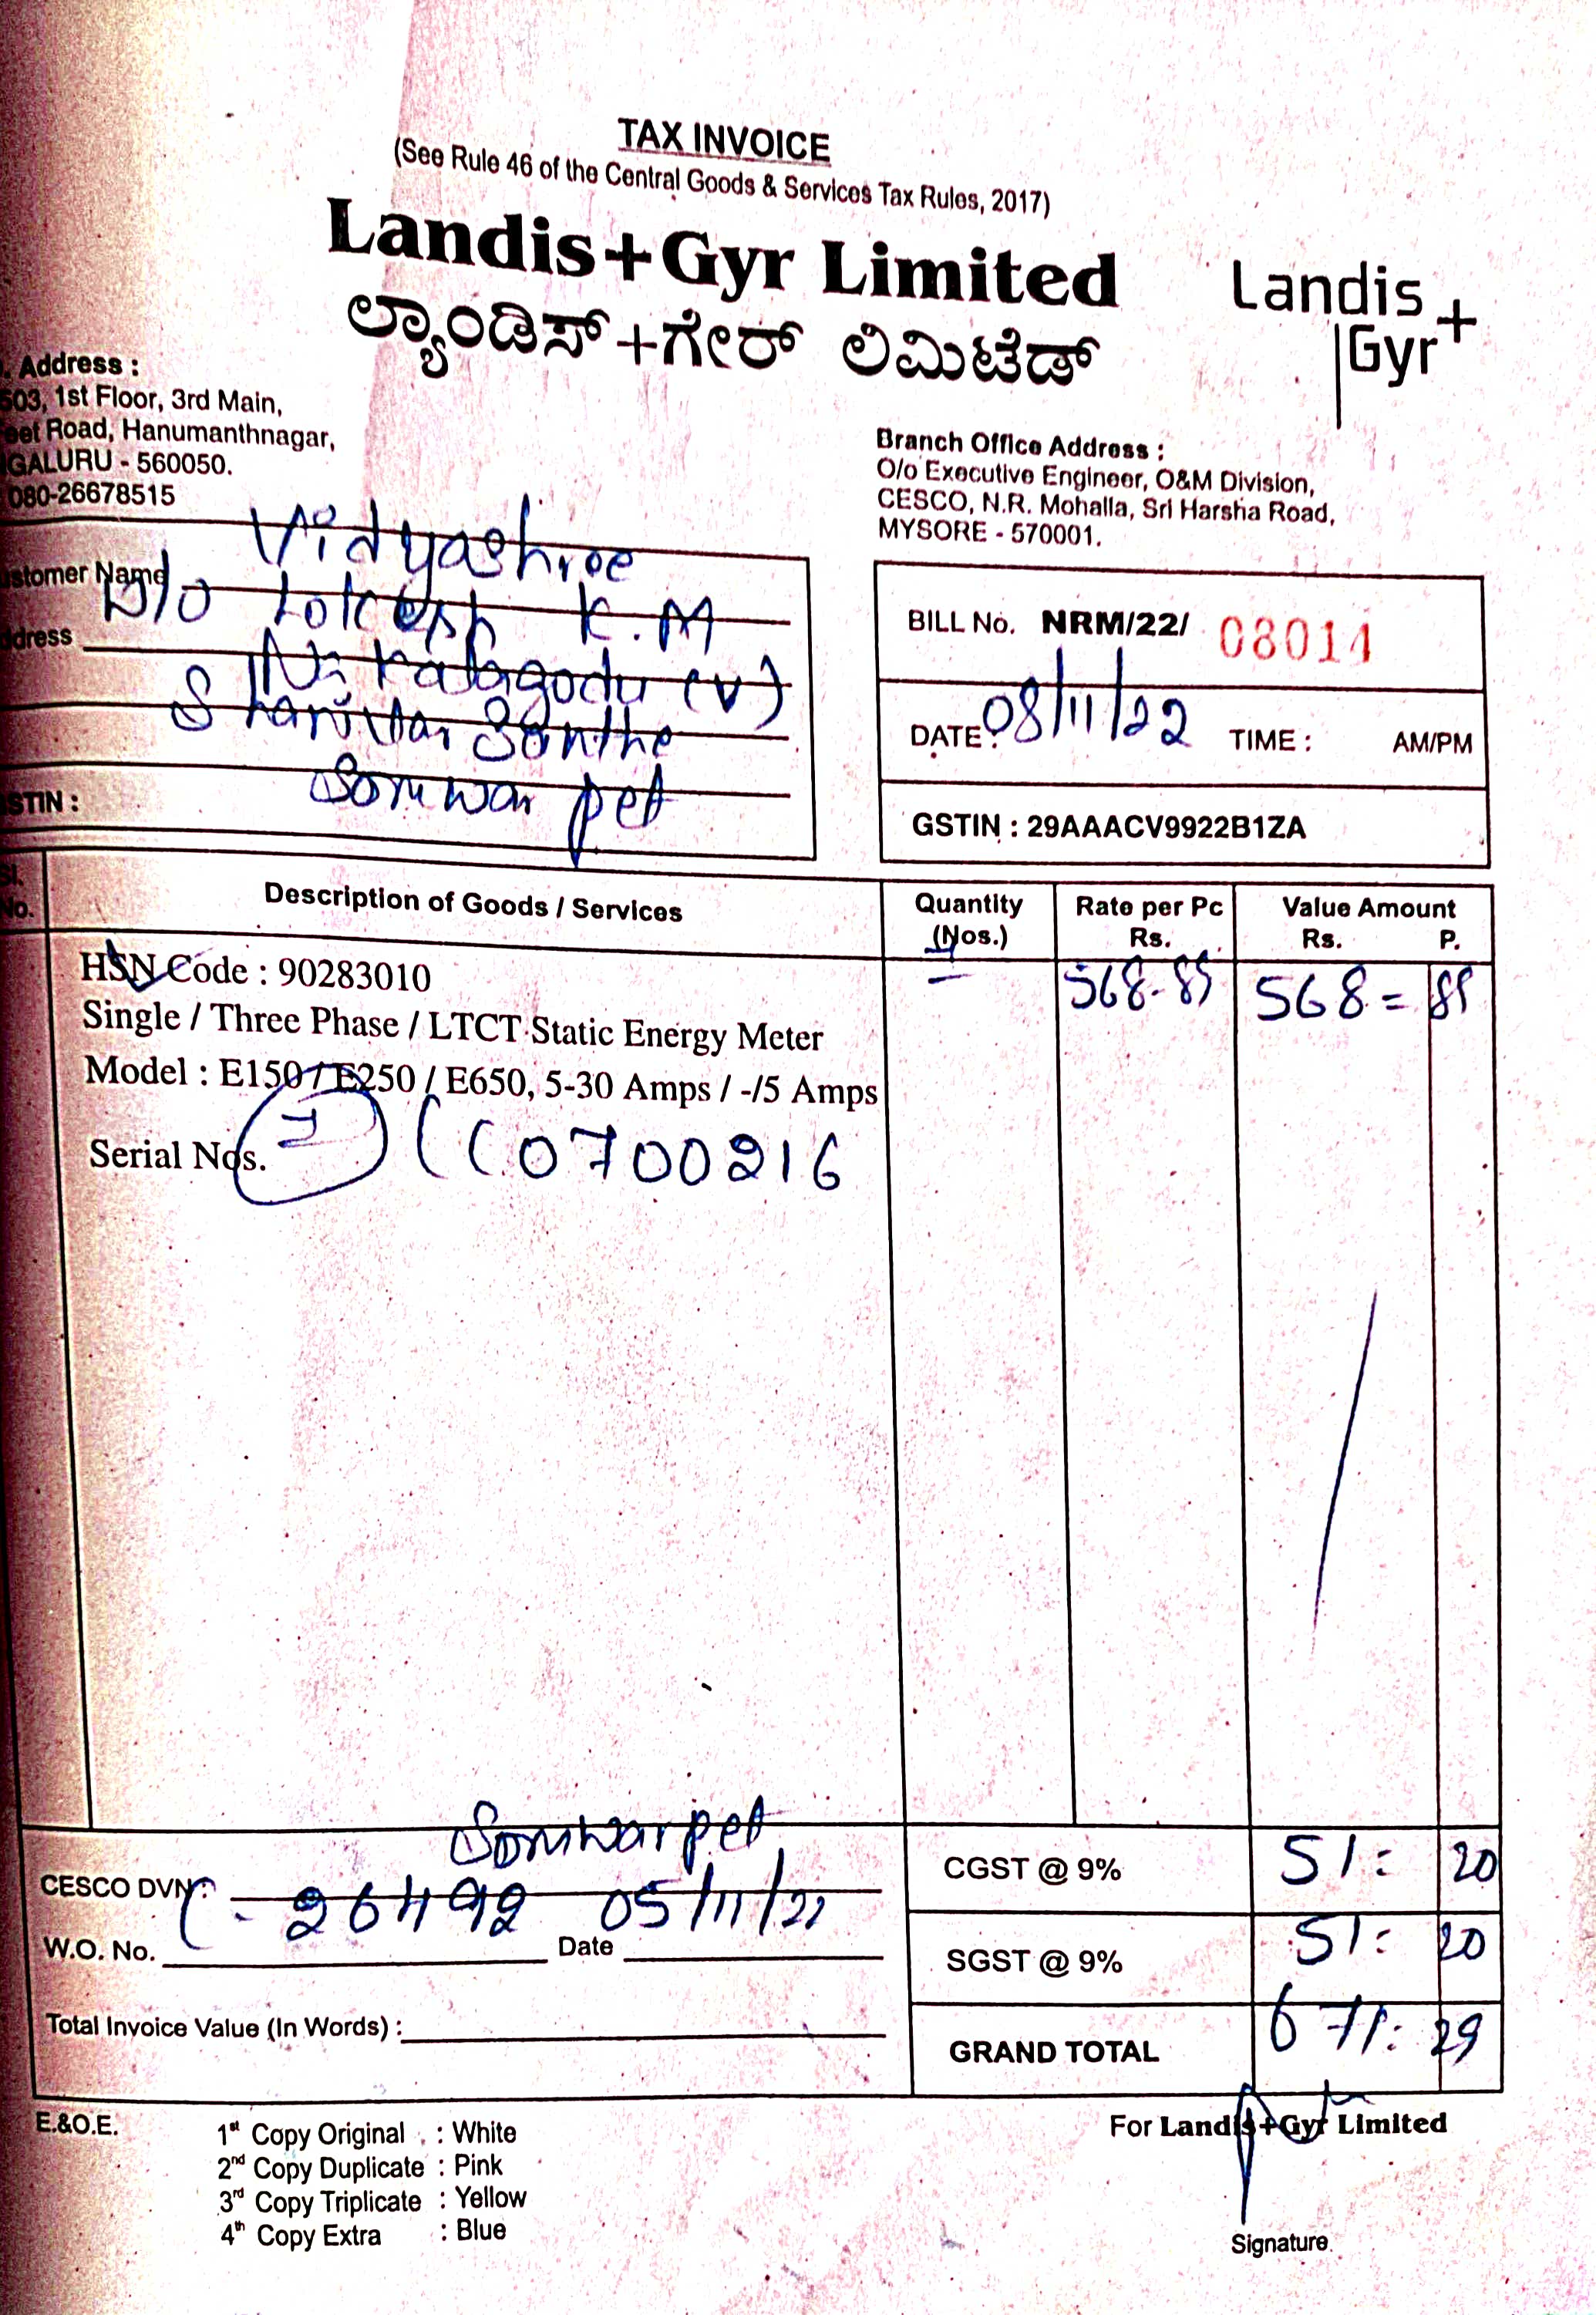 TAX INVOICE
(See Rule 46 of the Central Goods & Services Tax Rules, 2017)
Landis+Gyr Limited
ಲ್ಯಾಂಡಿಸ್+ಗೇರ್ ಲಿಮಿಟೆಡ್
Landis
Gyr+
. Address :
503, 1st Floor, 3rd Main,
eet Road, Hanumanthnagar,
GALURU - 560050.
080-26678515
Branch Office Address :
O/o Executive Engineer, O&M Division,
CESCO, N.R. Mohalla, Sri Harsha Road,
MYSORE - 570001.
Vidyashree
stomer Name D/o Lokesh K.M
ddress
(V)
Shanivar Santhe
STIN : Somwarpet
BILL No. NRM/22/ 08014
DATE : 08/11/22 TIME : AM/PM
GSTIN : 29AAACV9922B1ZA
Sl. No. Description of Goods / Services Quantity (Nos.) Rate per Pc Rs. Value Amount Rs. P.
HSN Code : 90283010 568-85 568=85
Single / Three Phase / LTCT Static Energy Meter
Model : E150 / E250 / E650, 5-30 Amps / -/5 Amps
Serial Nos. 0700216
Somwarpet
CESCO DVN :
26492 05/11/22
W.O. No. Date
Total Invoice Value (In Words) :
CGST @ 9% 51: 20
SGST @ 9% 51: 20
GRAND TOTAL 671: 29
E.&O.E.
1st Copy Original : White
2nd Copy Duplicate : Pink
3rd Copy Triplicate : Yellow
4th Copy Extra : Blue
For Landis+Gyr Limited
Signature